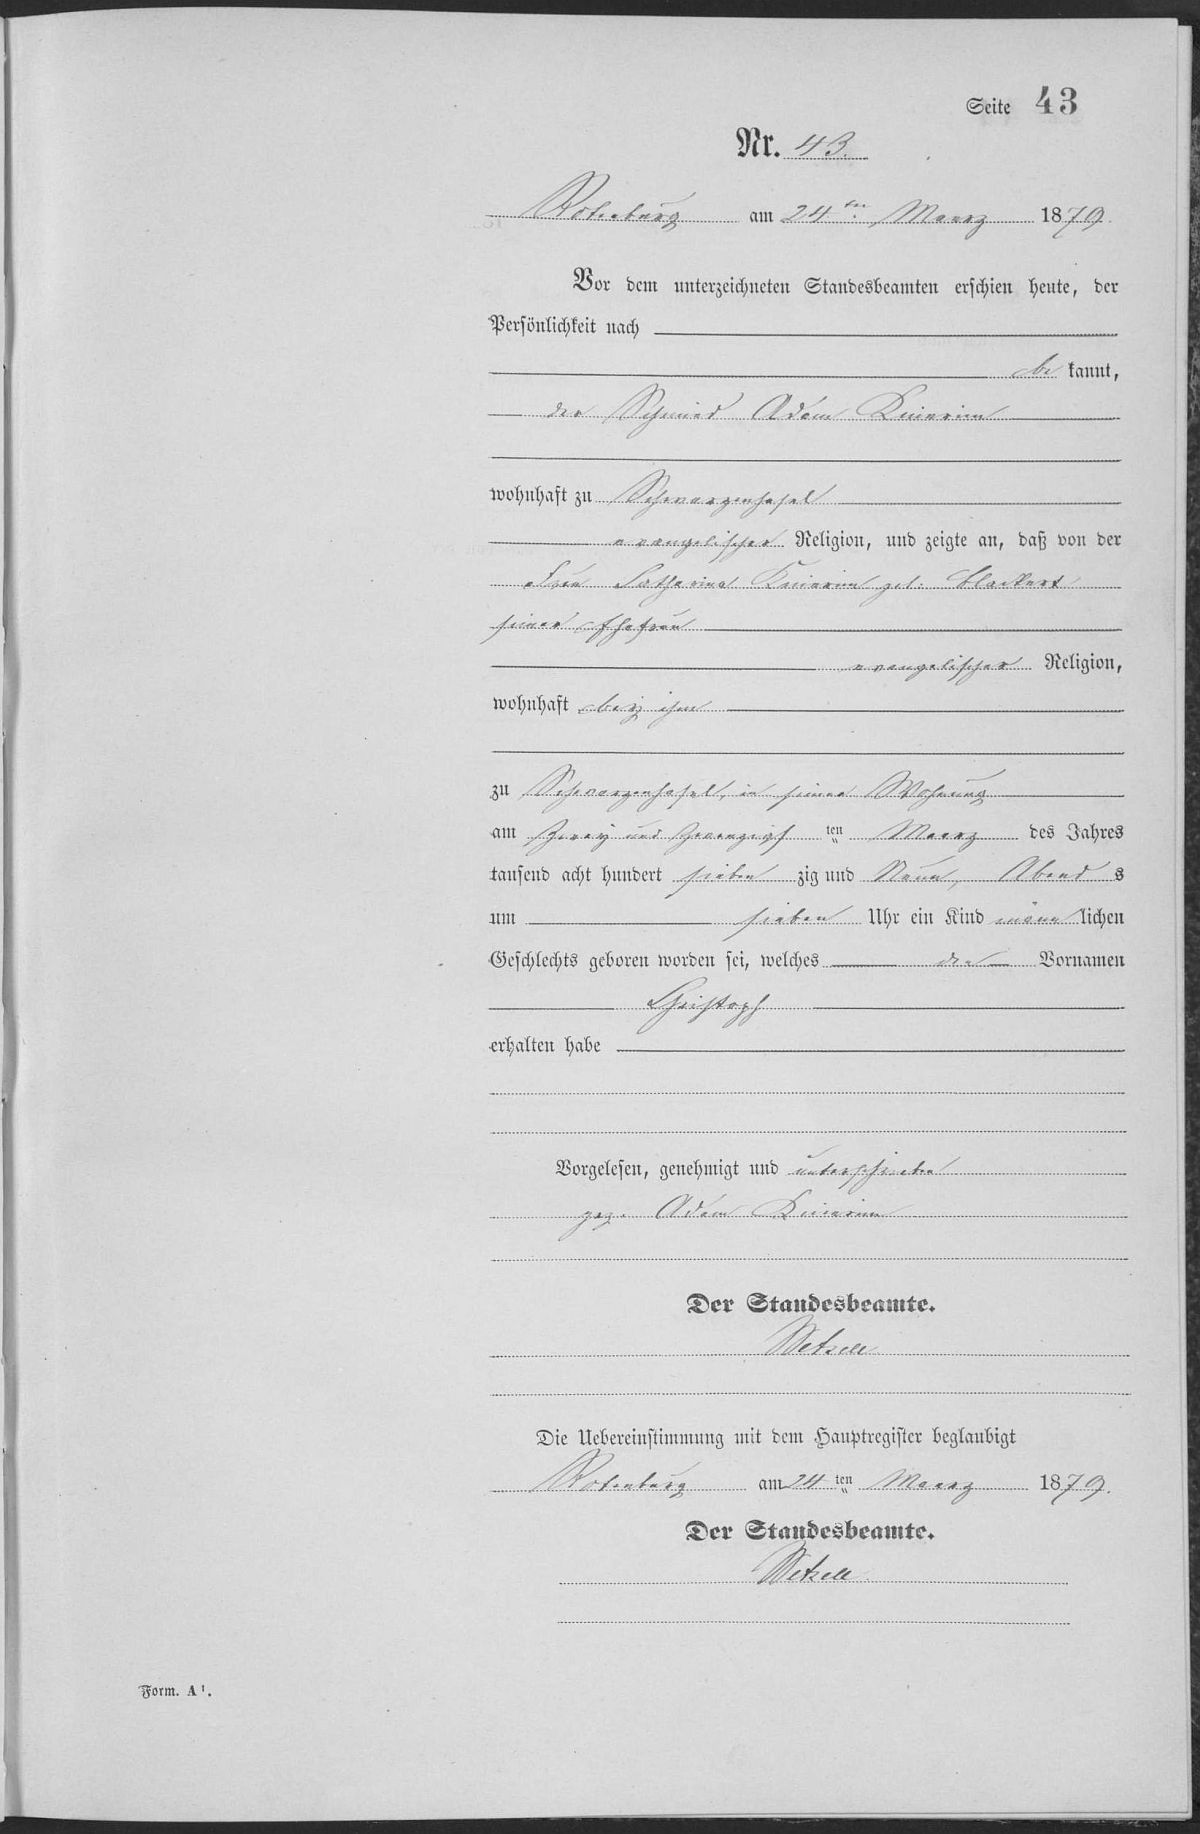 Seite 43
Nr. 43.
Rotenburg am 24ten Maerz 1879.
Vor dem unterzeichneten Standesbeamten erschien heute, der
Persönlichkeit nach
be kannt,
der Schmied Adam Knierim
wohnhaft zu Schwarzenhasel
evangelischer Religion, und zeigte an, daß von der
Frau Catharina Knierim geb. Blackert
seiner Ehefrau
evangelischer Religion,
wohnhaft bei ihm
zu Schwarzenhasel, in seiner Wohnung
am zwei und zwanzigsten Maerz des Jahres
tausend acht hundert sieben zig und Neun, Abend s
um sieben Uhr ein Kind männ lichen
Geschlechts geboren worden sei, welches den Vornamen
Christoph
erhalten habe
Vorgelesen, genehmigt und unterschrieben
gez. Adam Knierim
Der Standesbeamte.
Die Uebereinstimmung mit dem Hauptregister beglaubigt
Rotenburg am 24ten Maerz 1879.
Der Standesbeamte.
Form. A¹.